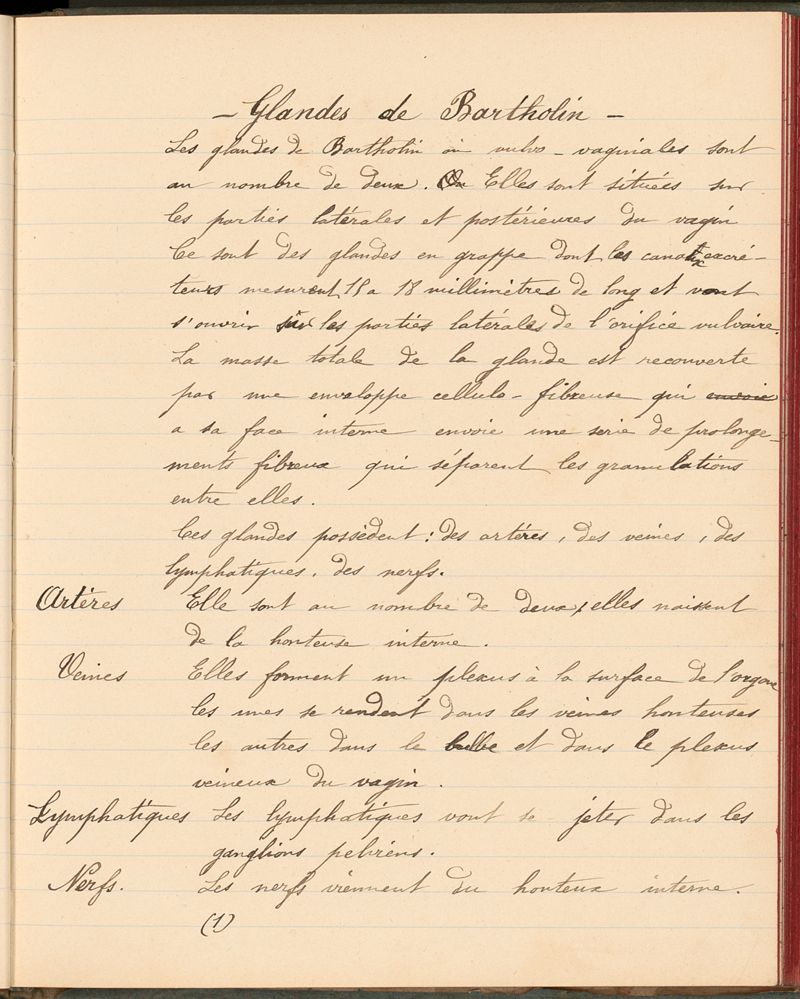 - Glandes de Bartholin -
Les glandes de Bartholin ou vulvo-vaginales sont
au nombre de deux. Elles sont situées sur
les parties latérales et postérieures du vagin
Ce sont des glandes en grappe dont les canaux excré-
teurs mesurent 15 a 18 millimètres de long et vont
s'ouvrir sur les parties latérales de l'orifice vulvaire.
La masse totale de la glande est recouverte
par une enveloppe cellulo-fibreuse qui envoie
a sa face interne envoie une serie de prolonge-
ments fibreux qui séparent les granulations
entre elles.
Ces glandes possèdent : des artères, des veines, des
lymphatiques. des nerfs.
Artères Elle sont au nombre de deux, elles naissent
de la honteuse interne.
Veines Elles forment un plexus à la surface de l'organe
les unes se rendent dans les veines honteuses
les autres dans le bulbe et dans le plexus
veineux du vagin.
Lymphatiques Les lymphatiques vont se jeter dans les
ganglions pelviens.
Nerfs. Les nerfs viennent du honteux interne.
(1)